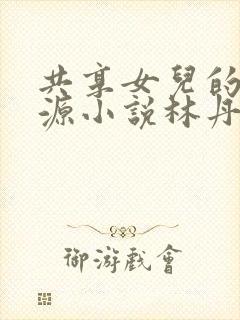 共享女兒的
源小説林丹
御游戲會